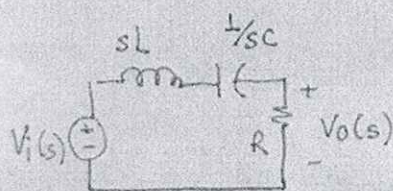 sL 1/sC
+
Vi(s) + - R Vo(s)
-